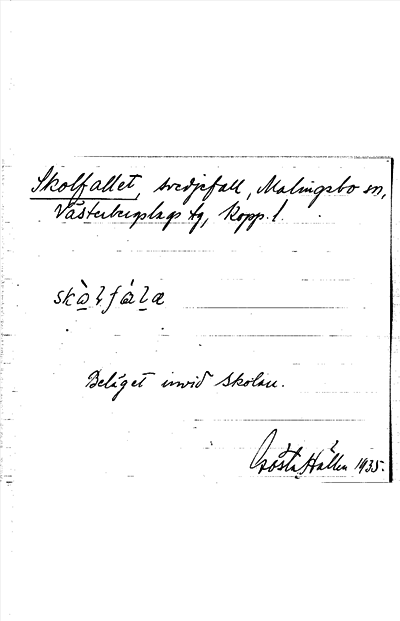 Skolfallet, svedjefall, Malingsbo sn,
Västerbergslags tg, Kopp. l.
skò̱lfála
Beläget invid skolan.
Gösta Hallén 1935.